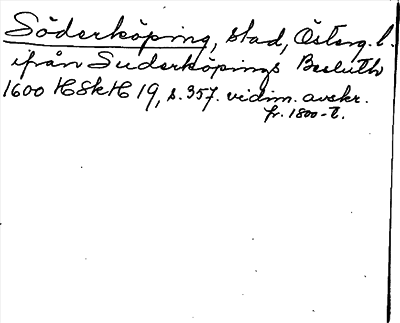 Söderköping, stad, Österg.l.
ifrån Suderköpings Besluth
1600 HSkH 19, s. 357. vidim. avskr.
fr. 1800-t.